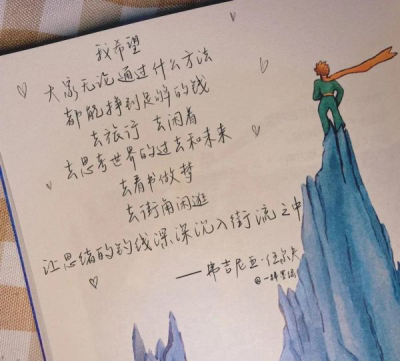 我希望
大家无论通过什么方法
都能挣到足够的钱
去旅行 去闲着
去思考世界的过去和未来
去看书做梦
去街角闲逛
让思绪的钓线深深沉入街流之中
——弗吉尼亚·伍尔夫